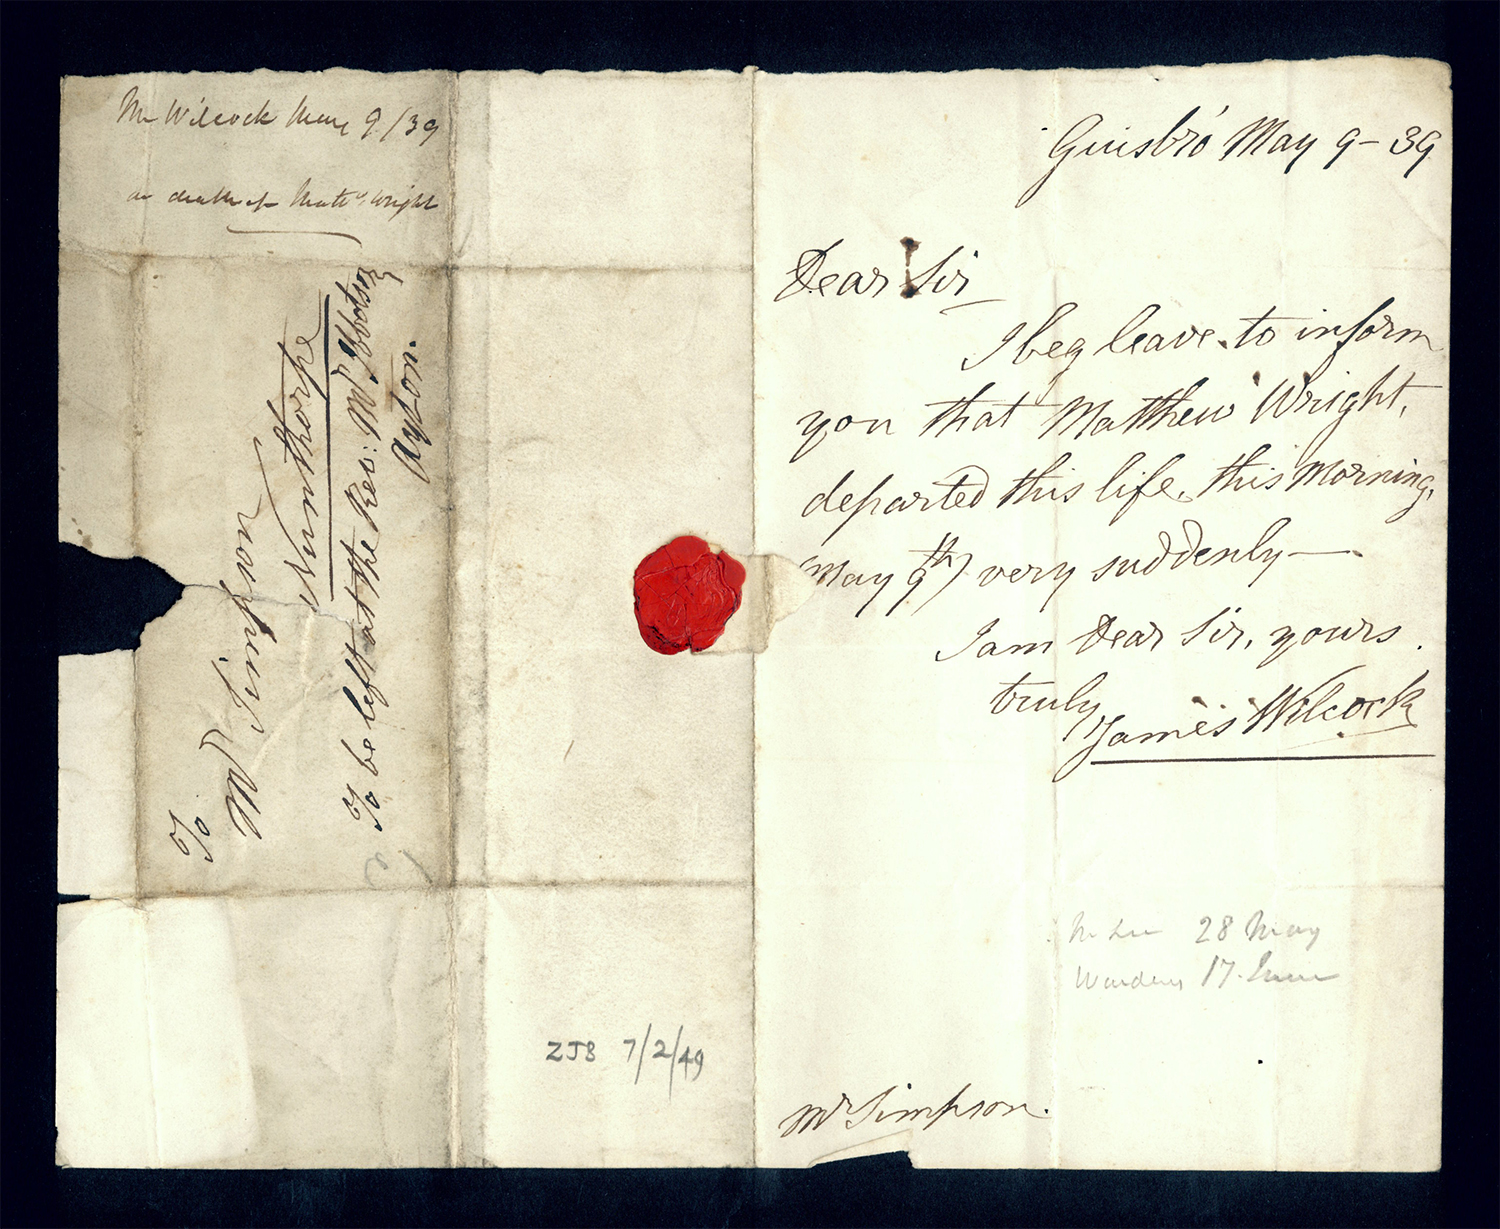 Mr Wilcock May 9/39
on death of Matt.w Wright
To
Mr Simpson
Nunthorpe
To be left at the Rev: Mr Ibbotson
Ayton.
ZJB 7/2/49
Guisbro' May 9 - 39
Dear Sir
I beg leave to inform
you that Matthew Wright,
departed this life, this Morning,
May 9th) very suddenly —
I am Dear Sir, yours
truly
James Wilcock
28 May
17 June
Mr Simpson.